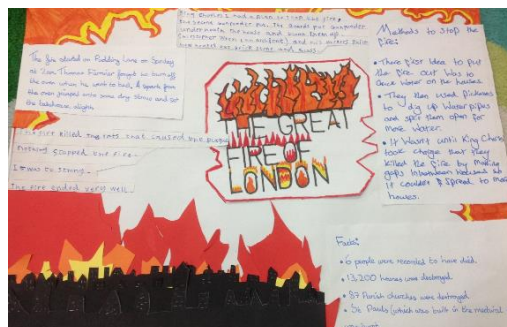 King Charles 2 had a plan to stop the fire,
The fire started on Pudding Lane on Sunday
at 2am Thomas Farriner forgot to turn off
the oven when he went to bed, A spark from
the oven jumped onto some dry straw and set
the bakehouse alight.
THE GREAT
FIRE OF
LONDON
The fire killed the rats that caused the plague
nothing stopped the fire.
It was to strong.
The fire ended very well.
Methods to stop the
fire:
• There first idea to put
the fire out was to
throw water on the houses
• They then used pickaxes
to dig up water pipes
and split them open for
more water.
• It Wasn't until King Charles
took charge that they
killed the fire by making
gaps inbetween houses so
it couldn't spread to more
houses.
Facts:
• 6 people were recorded to have died.
• 13,200 houses were destroyed.
• 87 Parish churches were destroyed
• St Pauls (which was built in the medieval